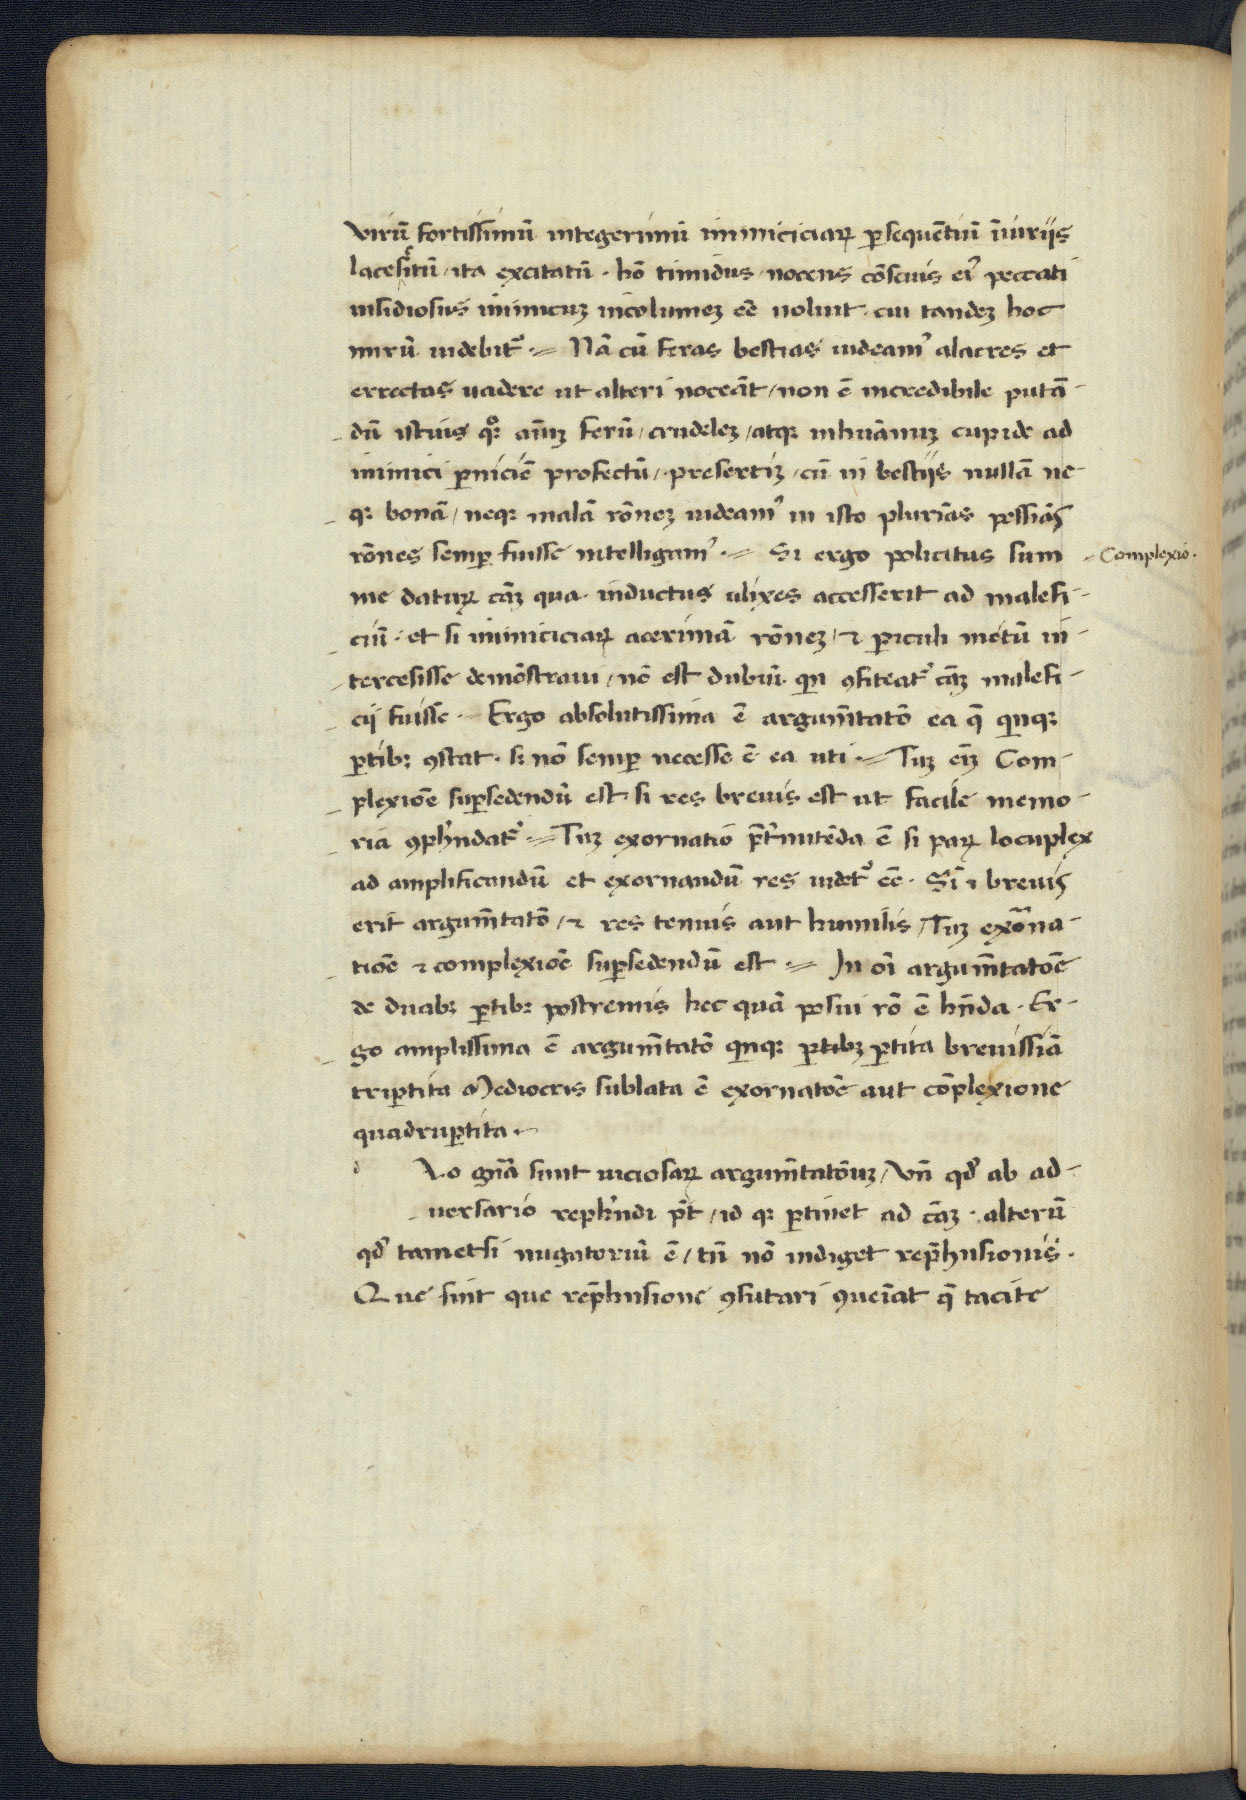 virū fortissimū integerimū inimiciciaꝝ ꝑsequētiū īiuriis
lacesitū, ita excitatū. hō timidus, nocens cōscius ei᷒ peccati
insidiosus inimicuꝫ incolumeꝫ eē noluit. cui tandeꝫ hoc
mirū uidebit᷒. Nā cū feras bestias uideam᷒ alacres et
errectas uadere ut alteri noceāt, non ē incredibile putā-
dū istius qqꝫ aīuꝫ ferū, crudeleꝫ, atqꝫ inhuānuꝫ cupide ad
inimici ꝑniciē profectū, presertiꝫ, cū in bestiis nullā ne-
qꝫ bonā, neqꝫ malā rōneꝫ uideam᷒ in isto plurīas pessīas
rōnes semꝑ fuisse intelligam᷒. Si ergo policitus sum
- Complexio.
me daturꝫ cāꝫ qua inductus ulixes accesserit ad malefi-
ciū. et si inimiciciaꝝ acerimā rōneꝫ, ⁊ ꝑiculi metū in-
tercesisse demōstraui, nō est dubiū qn ꝯfiteat᷒ cāꝫ malefi-
cij fuisse. Ergo absolutissima ē argum̄tatō ea q̄ qnqꝫ
ꝑtibꝫ ꝯstat. sꝫ nō semꝑ necesse ē ea uti. Tuꝫ eīꝫ Com-
plexiōe suꝑsedendū est si res breuis est ut facile memo-
ria ꝯprh̄ndat᷒. Tuꝫ exornatio p̄t̄mitēda ē si paꝝ locuplex
ad amplificandū et exornandū res uidet᷒ eē. Sī ⁊ breuis
erit argum̄tatō, ⁊ res tenuis aut humilis, Tuꝫ exōrna-
tiōe ⁊ complexiōe suꝑsedendū est. In oī argum̄tatōe
de duabꝫ ꝑtibꝫ postremis hec quā posui rō ē hn̄da. Er-
go amplissima ē argum̄tatō qnqꝫ ꝑtibꝫ ꝑtita breuissīa
triꝑtita Mediocris sublata ē exornatōe aut cōplexione
quadruꝑtita.
d Vo gn̄a sunt uiciosaꝝ argum̄tatōnuꝫ, Vn̄ qd̓ ab ad-
uersario reprh̄ndi pt̄, id qꝫ ꝑtinet ad cāꝫ. alterū
qd̓ tametsi nugatoriū ē, tn̄ nō indiget repr̄hnsionis.
Que sint que repr̄hnsione ꝯfutari ꝯueīat q̄ tacite